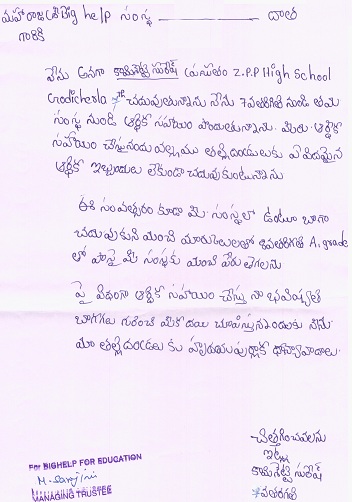 మహారాజశ్రీ Big help సంస్థ దాత
గారికి
నేను అనగా కామిశెట్టి సురేష్ ప్రస్తుతం Z.P.P High School
Godicherla 7వ చదువుతున్నాను నేను 7వతరగతి నుండి తమ
సంస్థ నుండి ఆర్థిక సహాయం పొందుతున్నాను. మీరు ఆర్థిక
సహాయం చేస్తునందువల్ల మా తల్లిదండ్రులకు ఏ విధమైన
ఆర్థిక ఇబ్బందులు లేకుండా చదువుకుంటున్నాను
ఈ సంవత్సరం కూడా మీ సంస్థలో ఉంటూ బాగా
చదువుకుని మంచి మార్కులతో తరగతి A. grade
లో పాసై మీ సంస్థకు మంచి పేరు తెగలను
పై విధంగా ఆర్థిక సహాయం చేస్తు నా భవిష్యత్
బాగోగులు గురించి మీ దయ చూపిస్తునందులకు నేను
మా తల్లిదండ్రులు కు హృదయపూర్వక ధన్యావాదాలు.
చిత్తగించవలను
ఇట్లు
కామిశెట్టి సురేష్
7వతరగతి
For BIGHELP FOR EDUCATION
M. Sarojini
MANAGING TRUSTEE